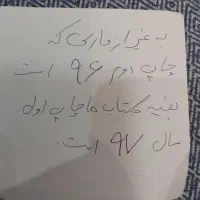 به غیر از فارسی که
چاپ دوم ۹۶ است
بقیه کتاب ها چاپ اول
سال ۹۷ است.